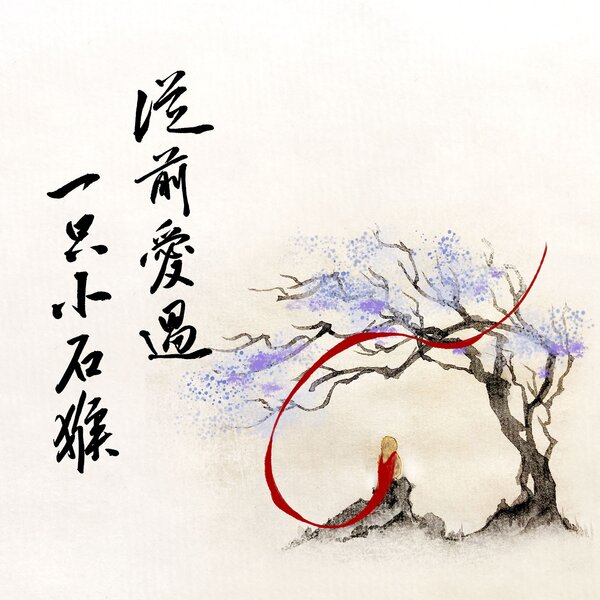 從前愛過
一只小石猴